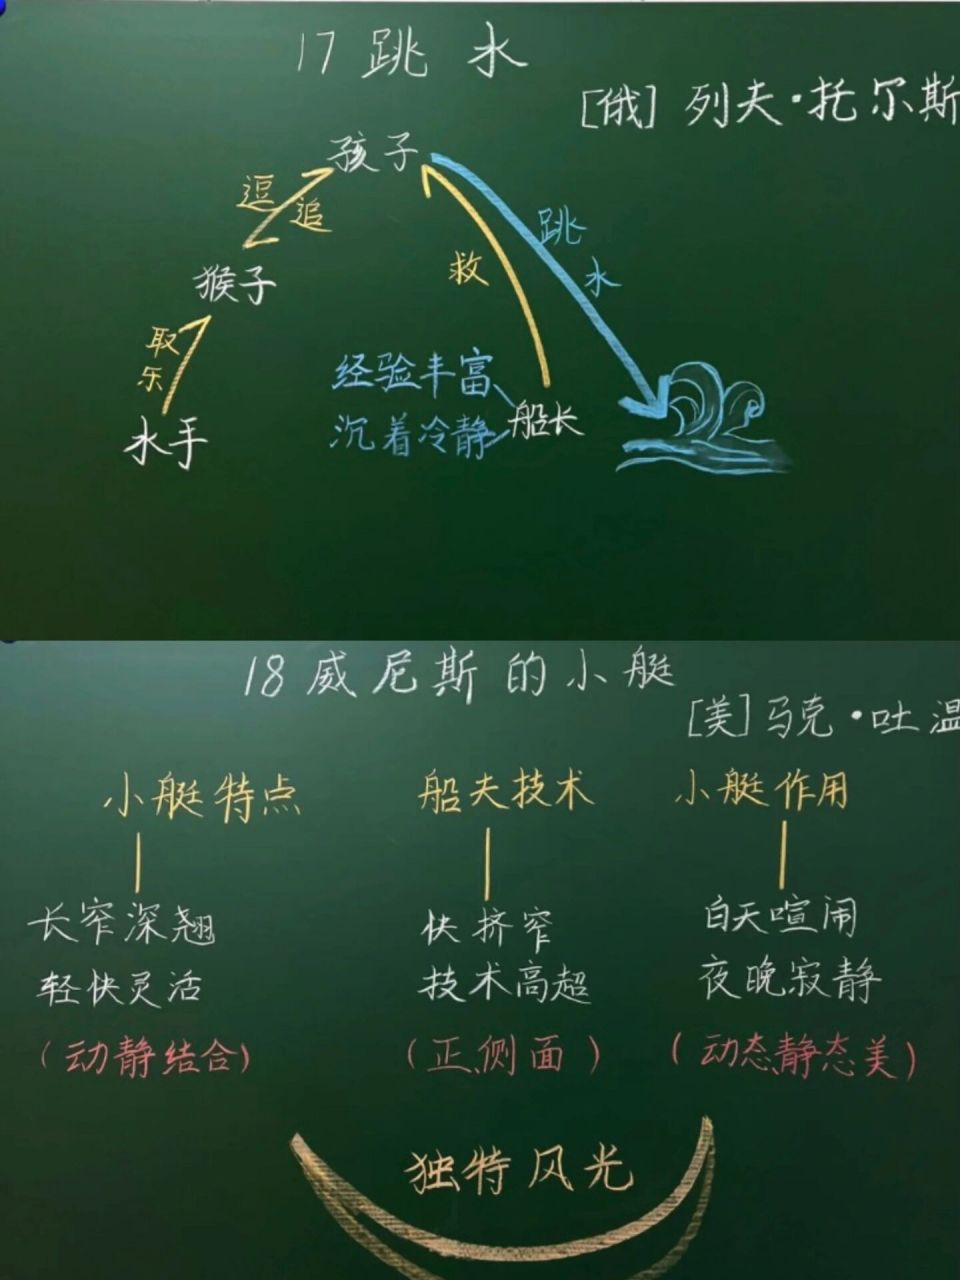 17 跳水
[俄] 列夫·托尔斯
孩子
逗 追
跳水
猴子
救
取乐
经验丰富、
沉着冷静
船长
水手
18 威尼斯的小艇
[美] 马克·吐温
小艇特点 船夫技术 小艇作用
长窄深翘 快挤窄 白天喧闹
轻快灵活 技术高超 夜晚寂静
(动静结合) (正、侧面) (动态、静态美)
独特风光